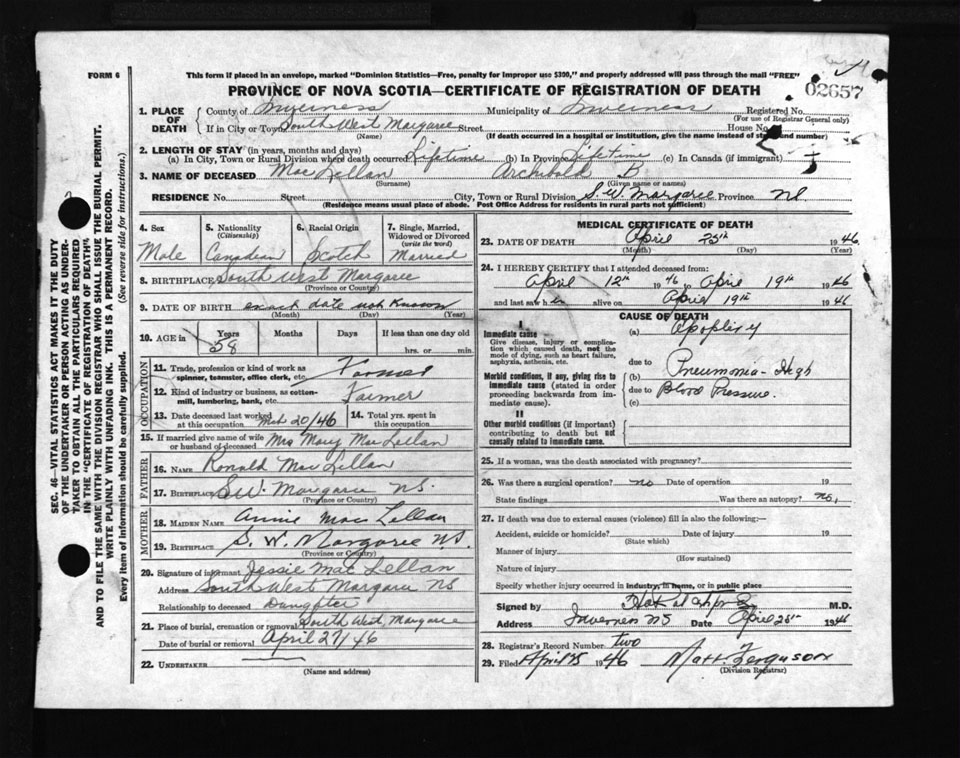 FORM 6
This form if placed in an envelope, marked "Dominion Statistics—Free, penalty for improper use $300," and properly addressed will pass through the mail "FREE"
PROVINCE OF NOVA SCOTIA—CERTIFICATE OF REGISTRATION OF DEATH
02657
1. PLACE OF DEATH
County of Inverness Municipality of Inverness Registered No.
(For use of Registrar General only)
If in City or Town South West Margaree Street House No.
(Name) (If death occurred in a hospital or institution, give the name instead of street and number)
2. LENGTH OF STAY (in years, months and days)
(a) In City, Town or Rural Division where death occurred Lifetime (b) In Province Lifetime (c) In Canada (if immigrant)
3. NAME OF DECEASED Mac Lellan Archibald B
(Surname) (Given name or names)
RESIDENCE No. Street City, Town or Rural Division S. W. Margaree Province NS
(Residence means usual place of abode. Post Office Address for residents in rural parts not sufficient)
4. Sex Male
5. Nationality (Citizenship) Canadian
6. Racial Origin Scotch
7. Single, Married, Widowed or Divorced (write the word) Married
8. BIRTHPLACE South West Margaree
(Province or County)
9. DATE OF BIRTH exact date not Known
(Month) (Day) (Year)
10. AGE in Years Months Days If less than one day old
58 hrs. or min.
OCCUPATION
11. Trade, profession or kind of work as spinner, teamster, office clerk, etc. Farmer
12. Kind of industry or business, as cotton-mill, lumbering, bank, etc. Farmer
13. Date deceased last worked at this occupation 20/46
14. Total yrs. spent in this occupation
15. If married give name of wife or husband of deceased Mrs Mary Mac Lellan
FATHER
16. NAME Ronald Mac Lellan
17. BIRTHPLACE S.W. Margaree NS.
(Province or Country)
MOTHER
18. MAIDEN NAME Annie Mac Lellan
19. BIRTHPLACE S. W. Margaree N.S.
(Province or Country)
20. Signature of informant Jessie Mac Lellan
Address South West Margaree NS
Relationship to deceased Daughter
21. Place of burial, cremation or removal South West Margaree
Date of burial or removal April 27/46
22. UNDERTAKER
(Name and address)
MEDICAL CERTIFICATE OF DEATH
23. DATE OF DEATH April 25th 1946
(Month) (Day) (Year)
24. I HEREBY CERTIFY that I attended deceased from:
April 12th 1946 to April 19th 1946
and last saw h alive on April 19th 1946
CAUSE OF DEATH
I
Immediate cause
Give disease, injury or complication which caused death, not the mode of dying, such as heart failure, asphyxia, asthenia, etc.
(a) Apoplexy
due to
Morbid conditions, if any, giving rise to immediate cause (stated in order proceeding backwards from immediate cause).
(b) Pneumonia - High
due to Blood Pressure.
(c)
II
Other morbid conditions (if important) contributing to death but not causally related to immediate cause.
25. If a woman, was the death associated with pregnancy?
26. Was there a surgical operation? no Date of operation 19
State findings Was there an autopsy? no,
27. If death was due to external causes (violence) fill in also the following:—
Accident, suicide or homicide? Date of injury 19
(State which)
Manner of injury
(How sustained)
Nature of injury
Specify whether injury occurred in industry, in home, or in public place
Signed by M.D.
Address Inverness NS Date April 1946
28. Registrar's Record Number two
29. Filed April 1946 Matt. Ferguson
(Division Registrar)
SEC. 46—VITAL STATISTICS ACT MAKES IT THE DUTY
OF THE UNDERTAKER OR PERSON ACTING AS UNDER-
TAKER TO OBTAIN ALL THE PARTICULARS REQUIRED
IN THE "CERTIFICATE OF REGISTRATION OF DEATH"
AND TO FILE THE SAME WITH THE DIVISION REGISTRAR WHO SHALL ISSUE THE BURIAL PERMIT.
WRITE PLAINLY WITH UNFADING INK. THIS IS A PERMANENT RECORD.
Every item of information should be carefully supplied. (See reverse side for instructions.)